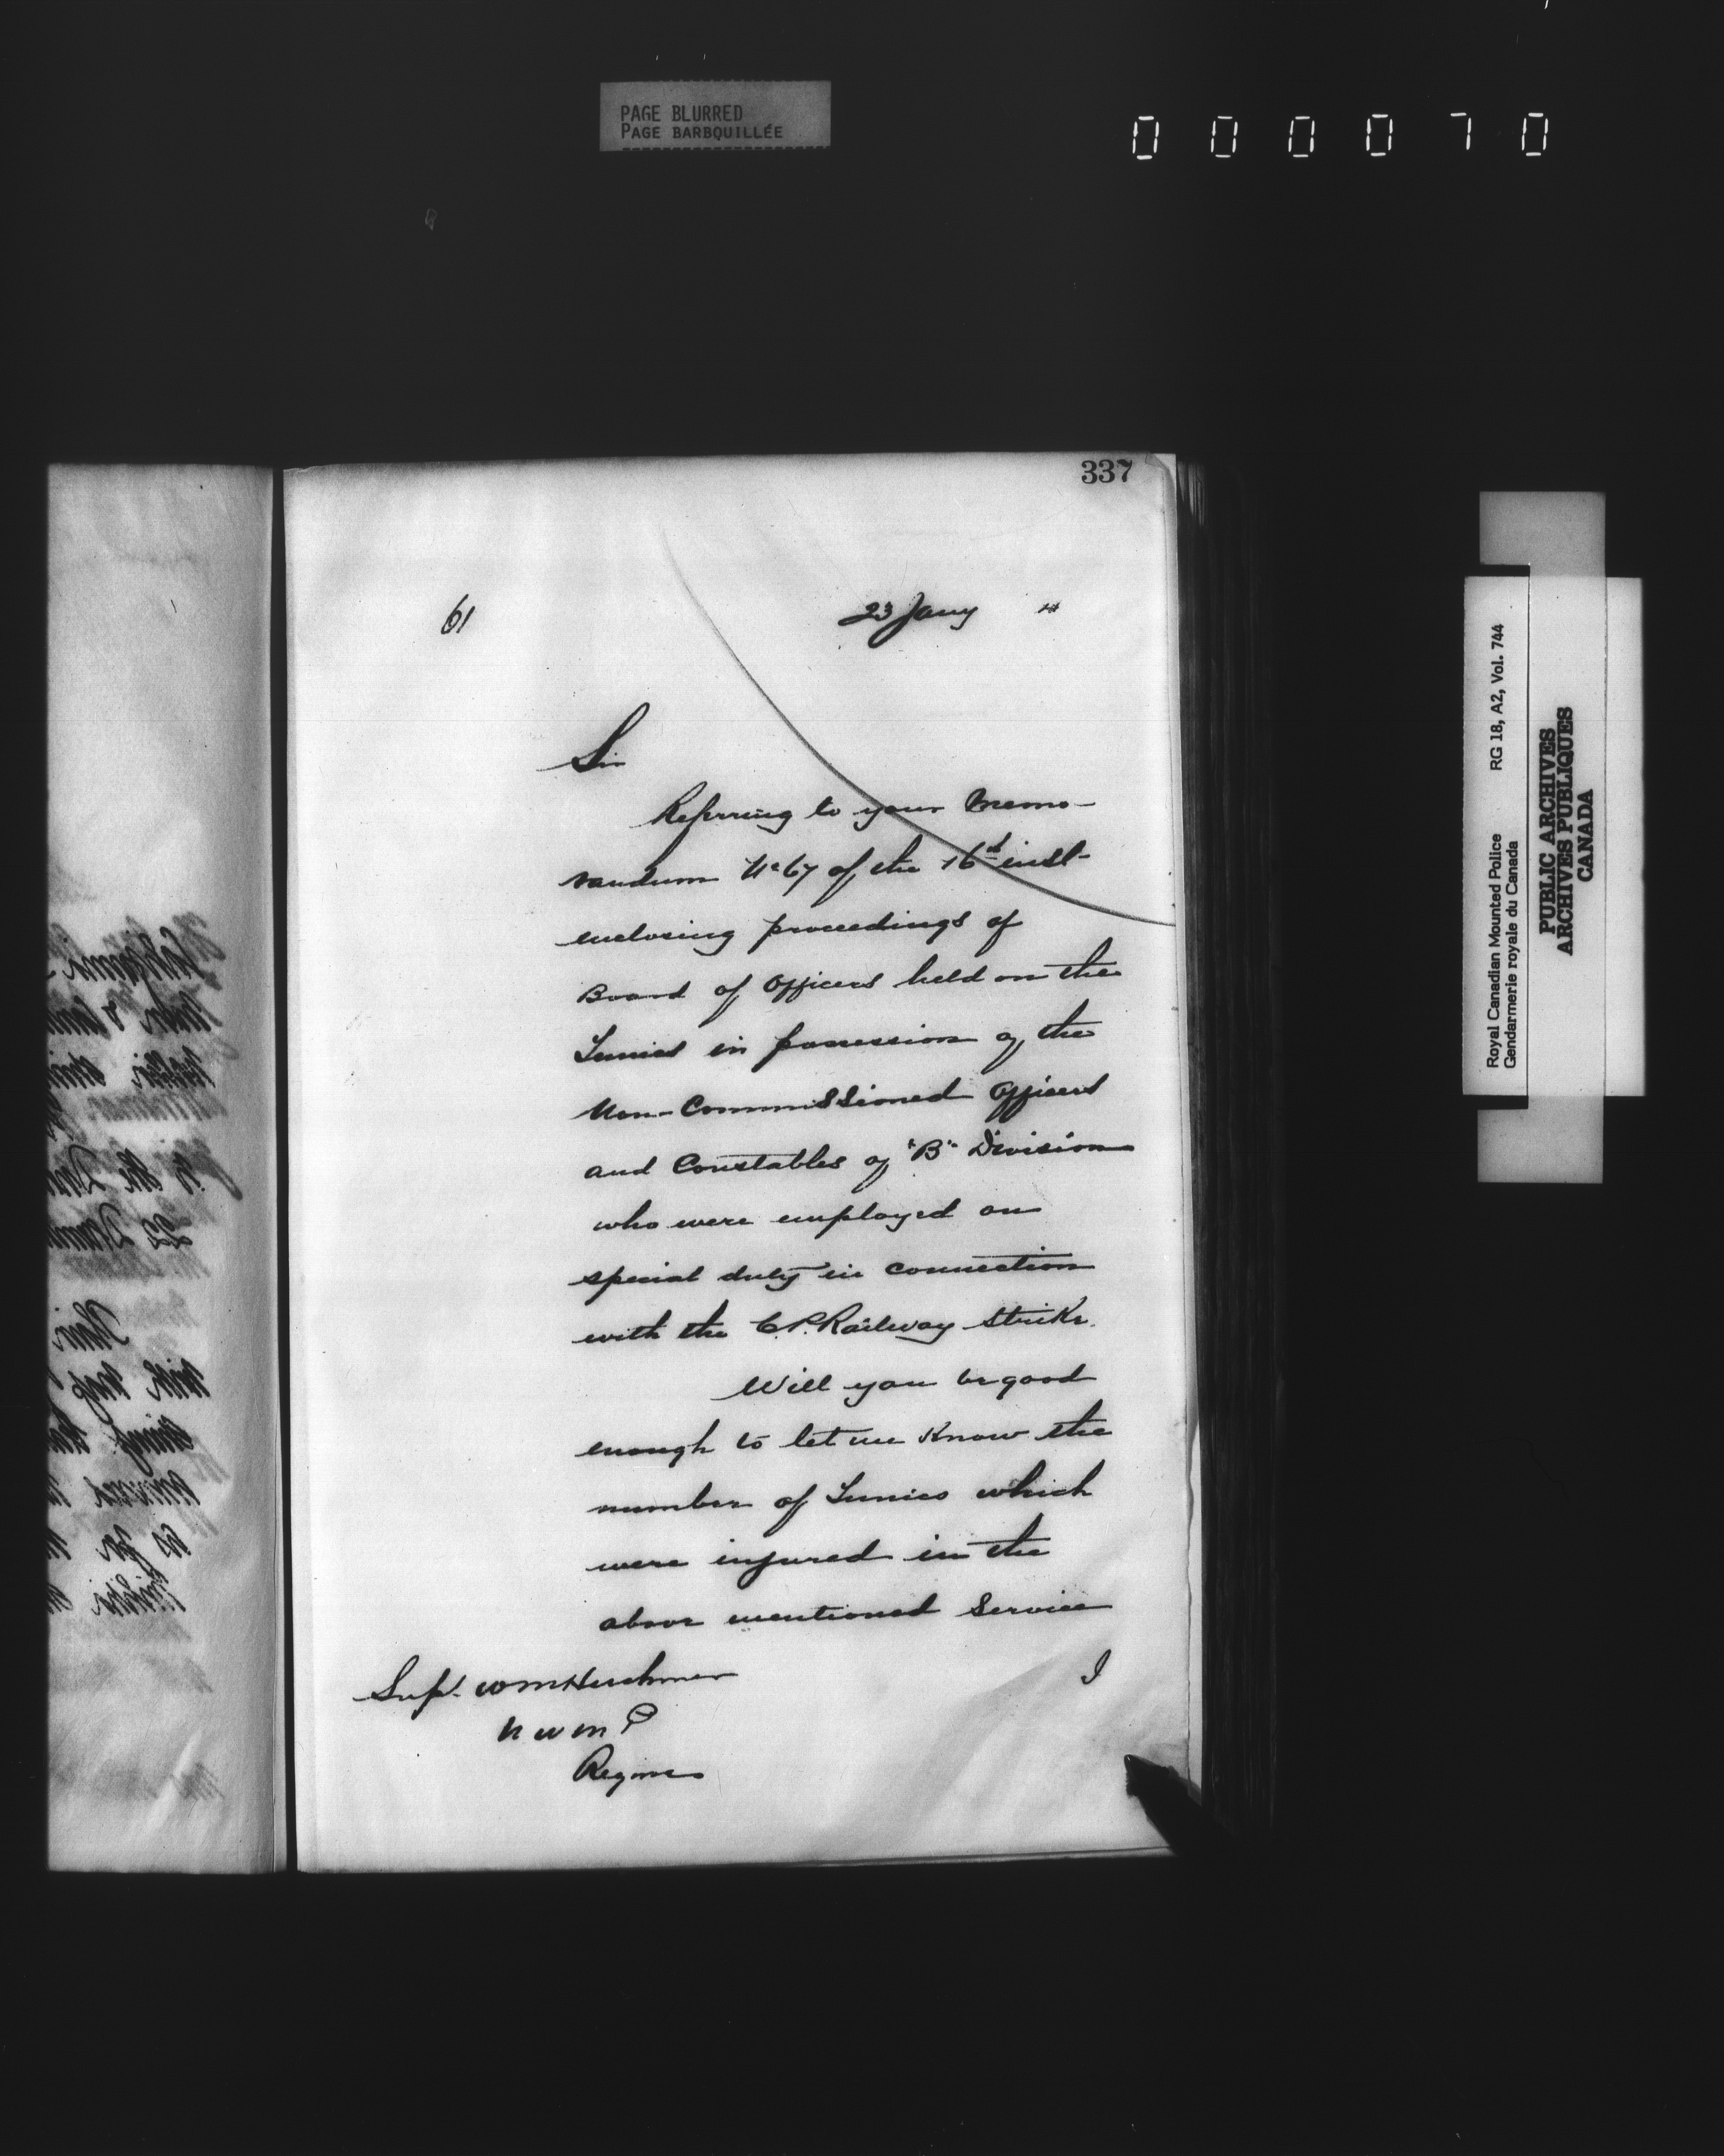 PAGE BLURRED
PAGE BARBQUILLÉE
000070
337
61
23 Jany
Sir
Referring to your Memo-
randum No 67 of the 16th inst-
enclosing proceedings of
Board of Officers held on the
Tunics in possession of the
Non-Commissioned Officers
and Constables of "B" Division
who were employed on
special duty in connection
with the C.P. Railway Strike.
Will you be good
enough to let me Know the
number of Tunics which
were injured in the
above mentioned Service
I
Supt. W M Herchmer
N W M P
Regina
Royal Canadian Mounted Police RG 18, A2, Vol. 744
Gendarmerie royale du Canada
PUBLIC ARCHIVES
ARCHIVES PUBLIQUES
CANADA